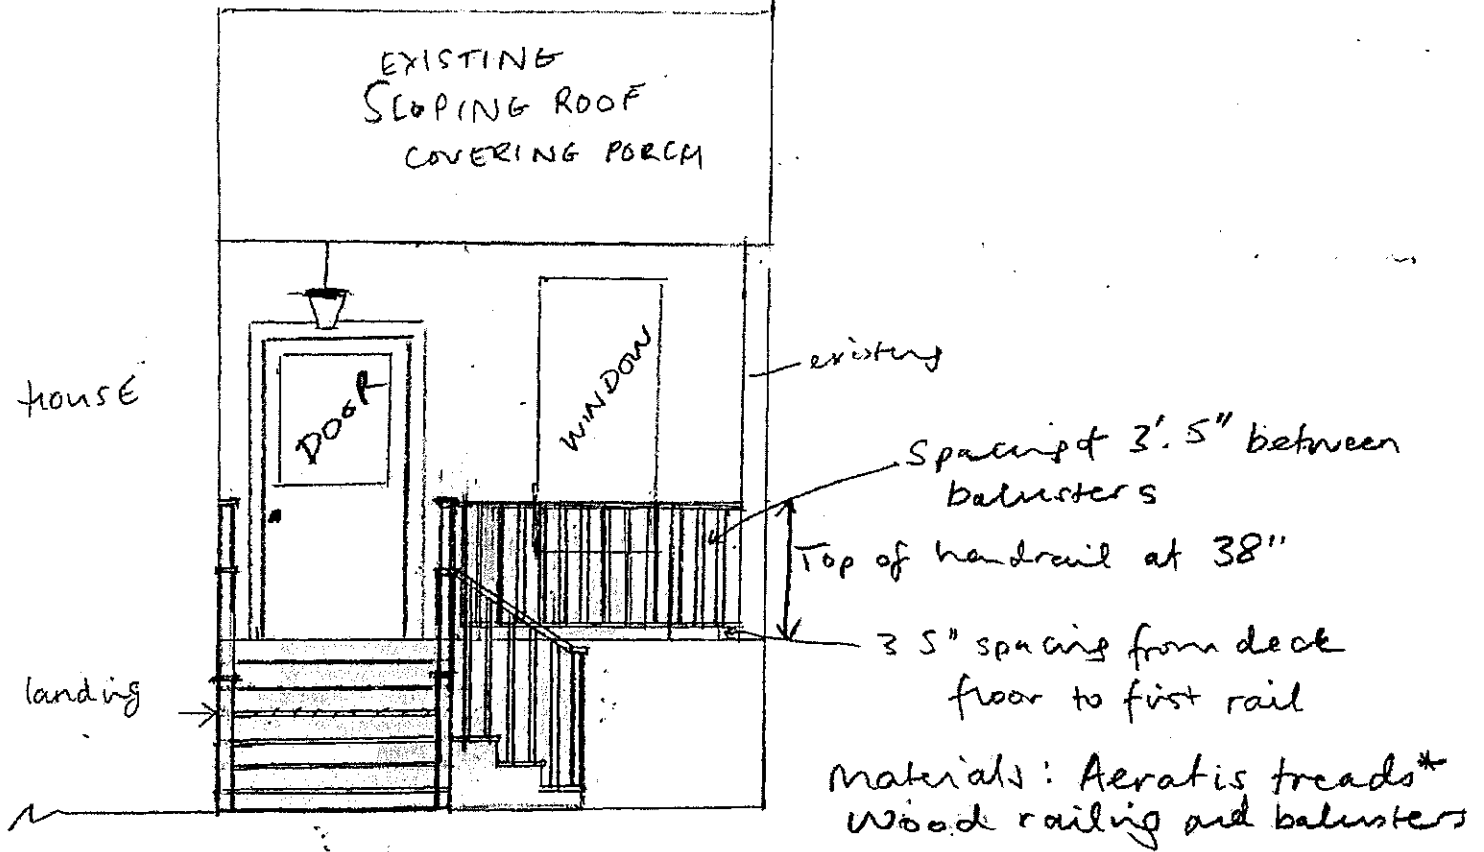 EXISTING
SLOPING ROOF
COVERING PORCH
HOUSE
DOOR
WINDOW
existing
Spacing of 3'.5" between
balusters
Top of handrail at 38"
3 5" spacing from deck
floor to first rail
landing
Materials: Aeratis treads*
Wood railing and balusters